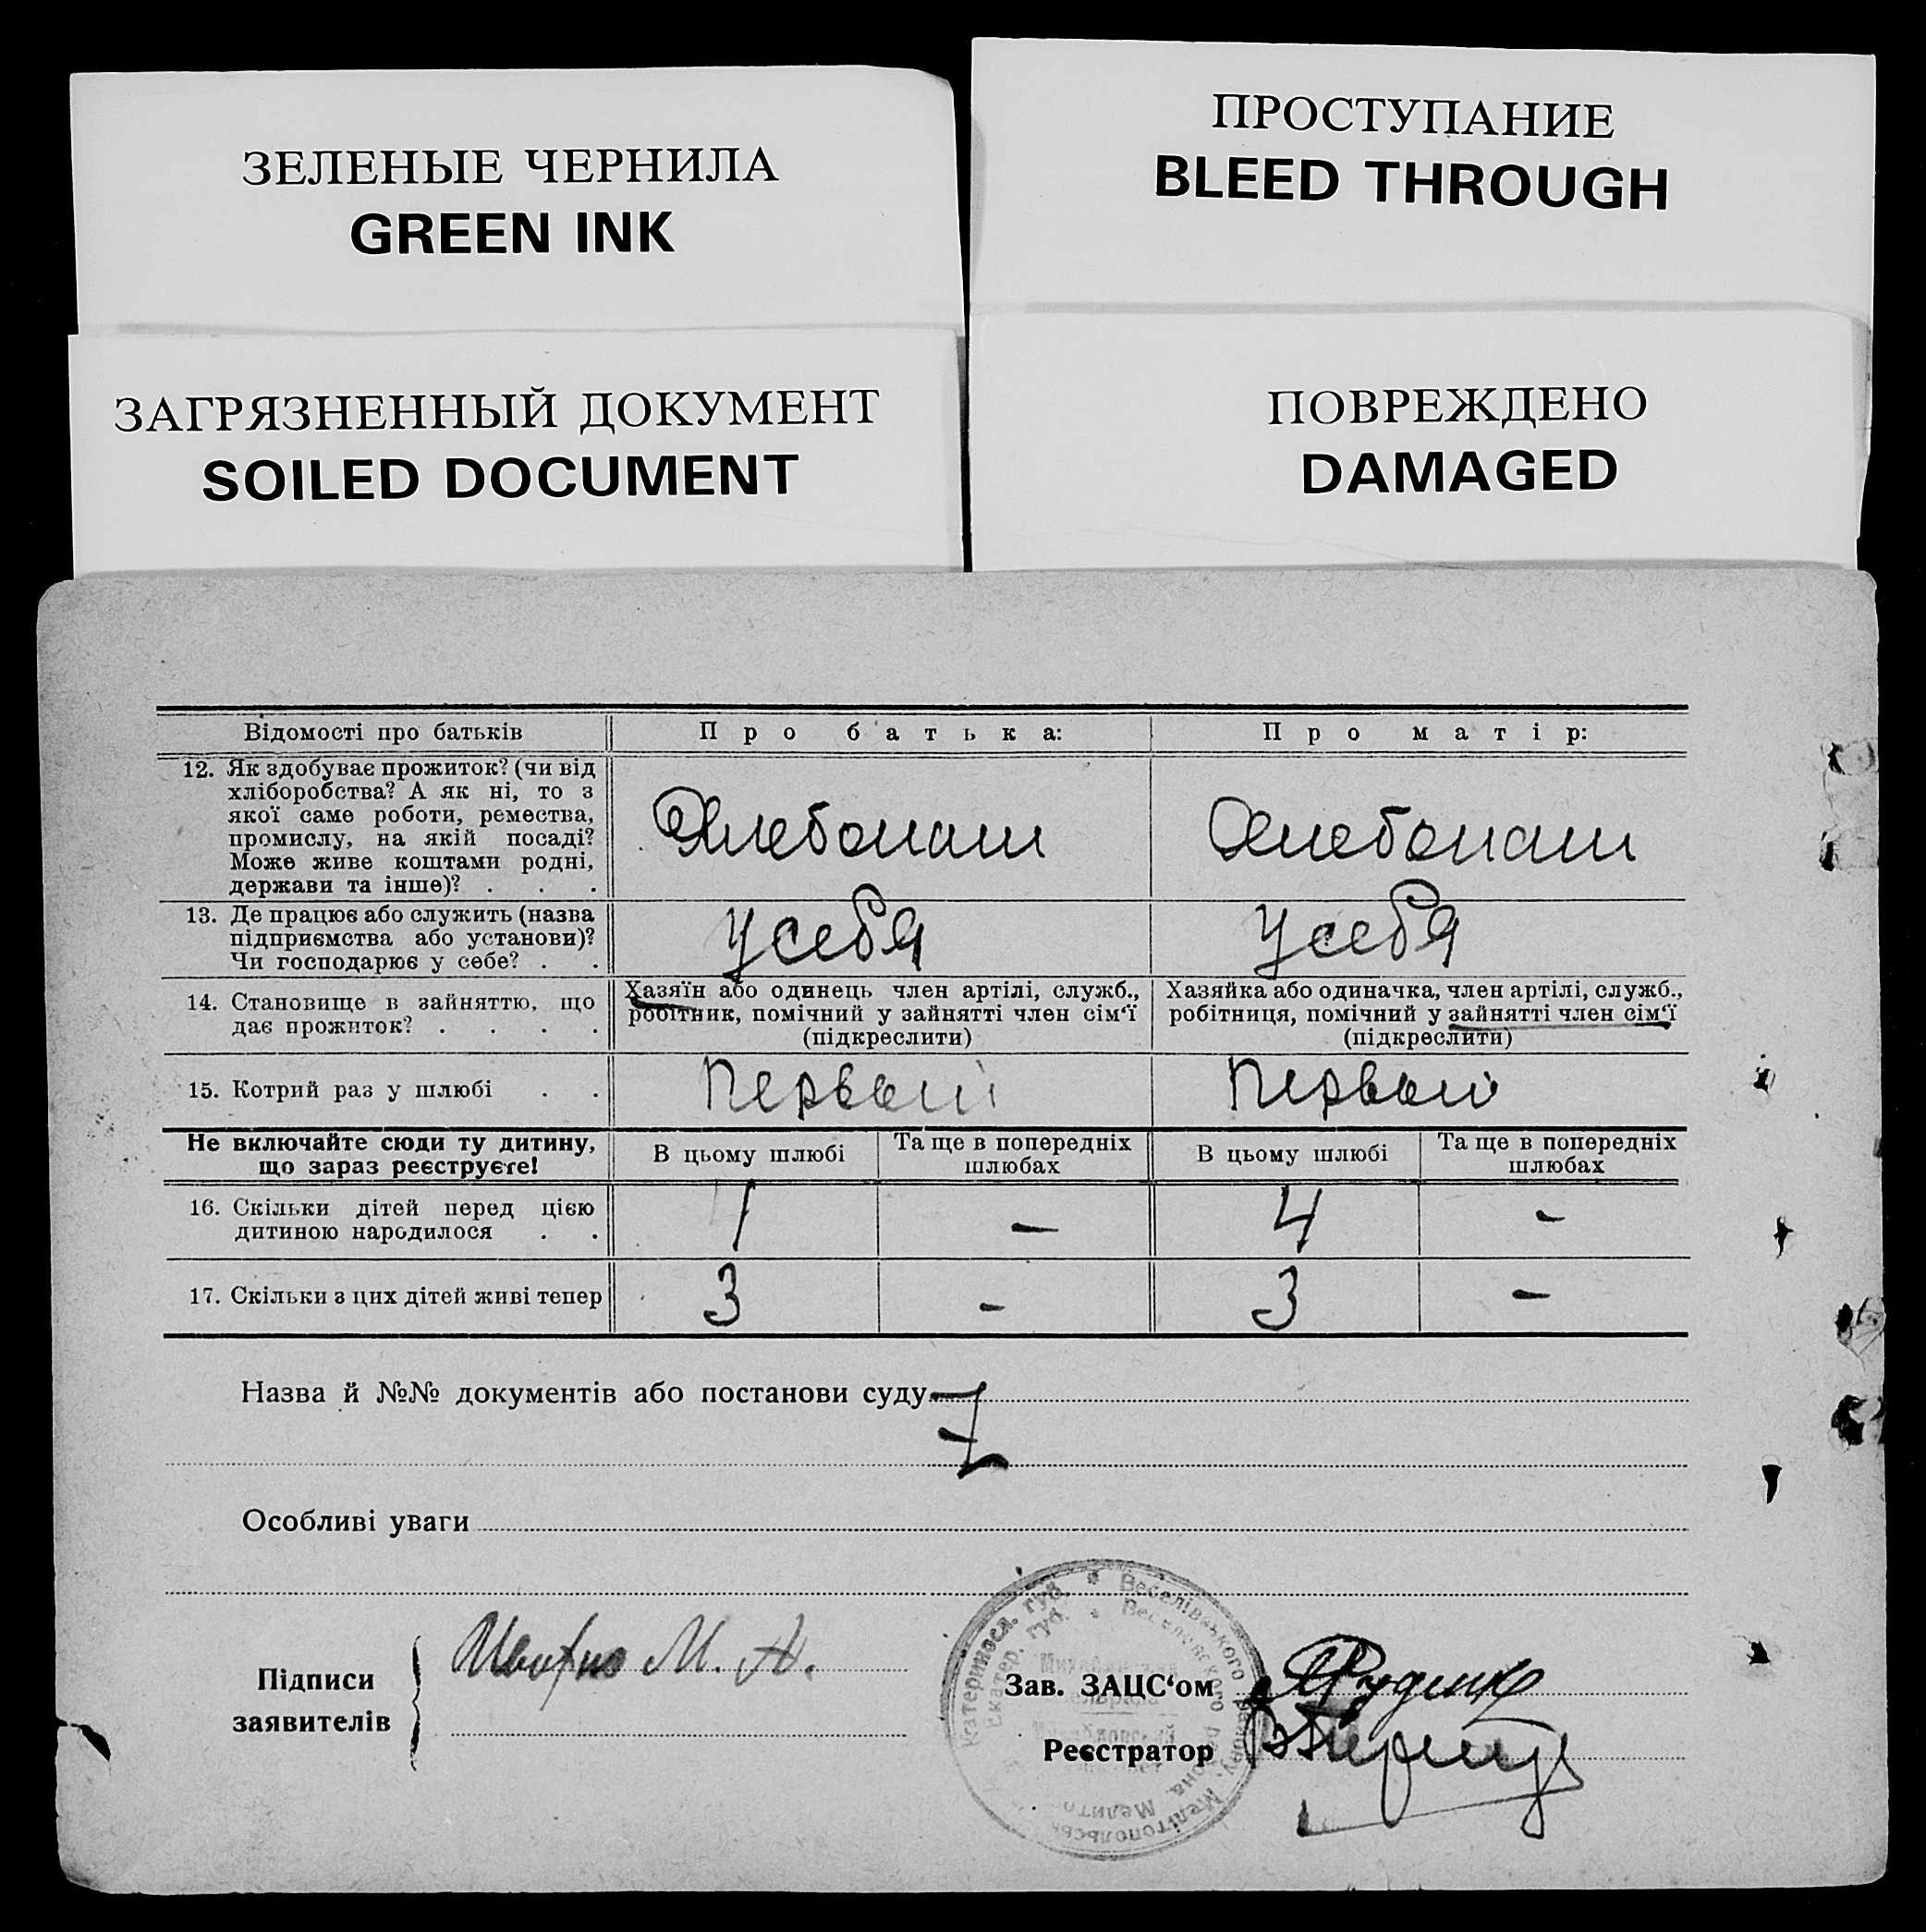 ЗЕЛЕНЫЕ ЧЕРНИЛА
GREEN INK
ПРОСТУПАНИЕ
BLEED THROUGH
ЗАГРЯЗНЕННЫЙ ДОКУМЕНТ
SOILED DOCUMENT
ПОВРЕЖДЕНО
DAMAGED
Відомості про батьків
Про батька:
Про матір:
12. Як здобуває прожиток? (чи від
хліборобства? А як ні, то з
якої саме роботи, ремества,
промислу, на якій посаді?
Може живе коштами родні,
держави та інше)? . . .
Хлебопаш
Хлебопаш
13. Де працює або служить (назва
підприємства або установи)?
Чи господарює у себе? . .
У себя
У себя
14. Становище в зайняттю, що
дає прожиток? . . . .
Хазяїн або одинець член артілі, служб.,
робітник, помічний у зайнятті член сім‘ї
(підкреслити)
Хазяйка або одиначка, член артілі, служб.,
робітниця, помічний у зайнятті член сім‘ї
(підкреслити)
15. Котрий раз у шлюбі . .
Первый
Первый
Не включайте сюди ту дитину,
що зараз реєструєте!
В цьому шлюбі
Та ще в попередніх
шлюбах
В цьому шлюбі
Та ще в попередніх
шлюбах
16. Скільки дітей перед цією
дитиною народилося . .
–
4
–
17. Скільки з цих дітей живі тепер
3
–
3
–
Назва й №№ документів або постанови суду
Особливі уваги
Підписи
заявителів
М.
Зав. ЗАЦС‘ом
Реєстратор
Катеринося. губ. * Веселівського району, Мелітопольськ
Екатер. губ. * Веселовского района Мелито